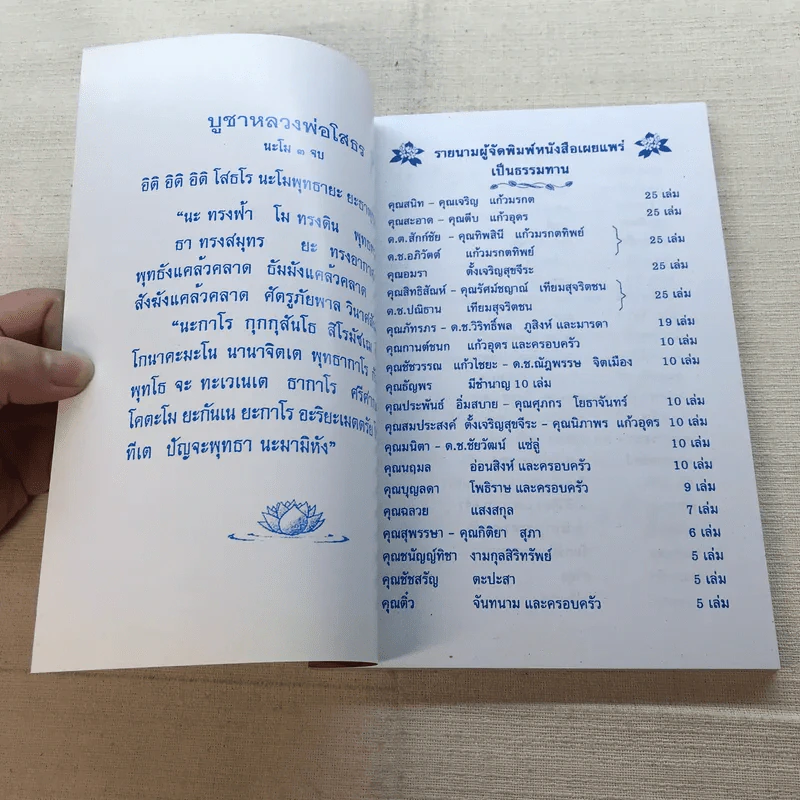 บูชาหลวงพ่อโสธร
นะโม ๓ จบ
อิติ อิติ อิติ โสธโร นะโมพุทธายะ
"นะ ทรงฟ้า โม ทรงดิน
ธา ทรงสมุทร ยะ ทรงอากาศ
พุทธังแคล้วคลาด ธัมมังแคล้วคลาด
สังฆังแคล้วคลาด ศัตรูภัยพาล
"นะกาโร กุกกุสันโธ สิโรมัชเฌ
โกนาคะมะโน นานาจิตเต พุทธากาโร
พุทโธ จะ ทะเวเนเต ธากาโร
โคตะโม ยะกันเน ยะกาโร อะริยะเมตตรัย
ทีเต ปัญจะพุทธา นะมามิหัง"
รายนามผู้จัดพิมพ์หนังสือเผยแพร่
เป็นธรรมทาน
คุณสนิท - คุณเจริญ แก้วมรกต 25 เล่ม
คุณสะอาด - คุณตีบ แก้วอุดร 25 เล่ม
ด.ต.สักก์ชัย - คุณทิพสินี แก้วมรกตทิพย์
ด.ช.อภิวัตต์ แก้วมรกตทิพย์ 25 เล่ม
คุณอมรา ตั้งเจริญสุขจีระ 25 เล่ม
คุณสิทธิสัณห์ - คุณรัศมิ์ชญาณ์ เทียมสุจริตชน
ด.ช.ปณิธาน เทียมสุจริตชน 25 เล่ม
คุณภัทรภร - ด.ช.วิริทธิ์พล ภูสิงห์ และมารดา 19 เล่ม
คุณกานต์ชนก แก้วอุดร และครอบครัว 10 เล่ม
คุณชัชวรรณ แก้วไชยะ - ด.ช.ณัฏพรรษ จิตเมือง 10 เล่ม
คุณธัญพร มีชำนาญ 10 เล่ม
คุณประพันธ์ อิ่มสบาย - คุณศุภกร โยธาจันทร์ 10 เล่ม
คุณสมประสงค์ ตั้งเจริญสุขจีระ - คุณนิภาพร แก้วอุดร 10 เล่ม
คุณมนิตา - ด.ช.ชัยวัฒน์ แซ่ลู่ 10 เล่ม
คุณนฤมล อ่อนสิงห์ และครอบครัว 10 เล่ม
คุณบุญลดา โพธิราษ และครอบครัว 9 เล่ม
คุณฉลวย แสงสกุล 7 เล่ม
คุณสุพรรษา - คุณกิติยา สุภา 6 เล่ม
คุณชนัญญ์ทิชา งามกุลสิริทรัพย์ 5 เล่ม
คุณชัชสรัญ ตะปะสา 5 เล่ม
คุณติ๋ว จันทนาม และครอบครัว 5 เล่ม